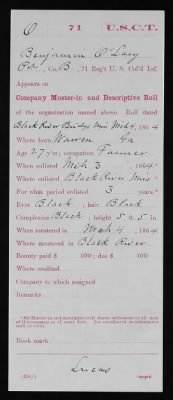 O | 71 | U.S.C.T.
Benjamin O'Dasy
Pvt, Co. B, 71 Reg't U. S. Col'd Inf.
Appears on
Company Muster-in and Descriptive Roll
of the organization named above. Roll dated
Black River Bridge Miss Mch 4, 1864
Where born Warren Ga
Age 27 y'rs; occupation Farmer
When enlisted Mch 3, 1864.
Where enlisted Black River Miss
For what period enlisted 3 years.*
Eyes Black; hair Black
Complexion Black; height 5 ft. 5 in.
When mustered in Mch 4, 1864
Where mustered in Black River
Bounty paid $ 100; due $ 100
Where credited
Company to which assigned
Remarks:
Book mark:
Lucas
(356) Copyist.